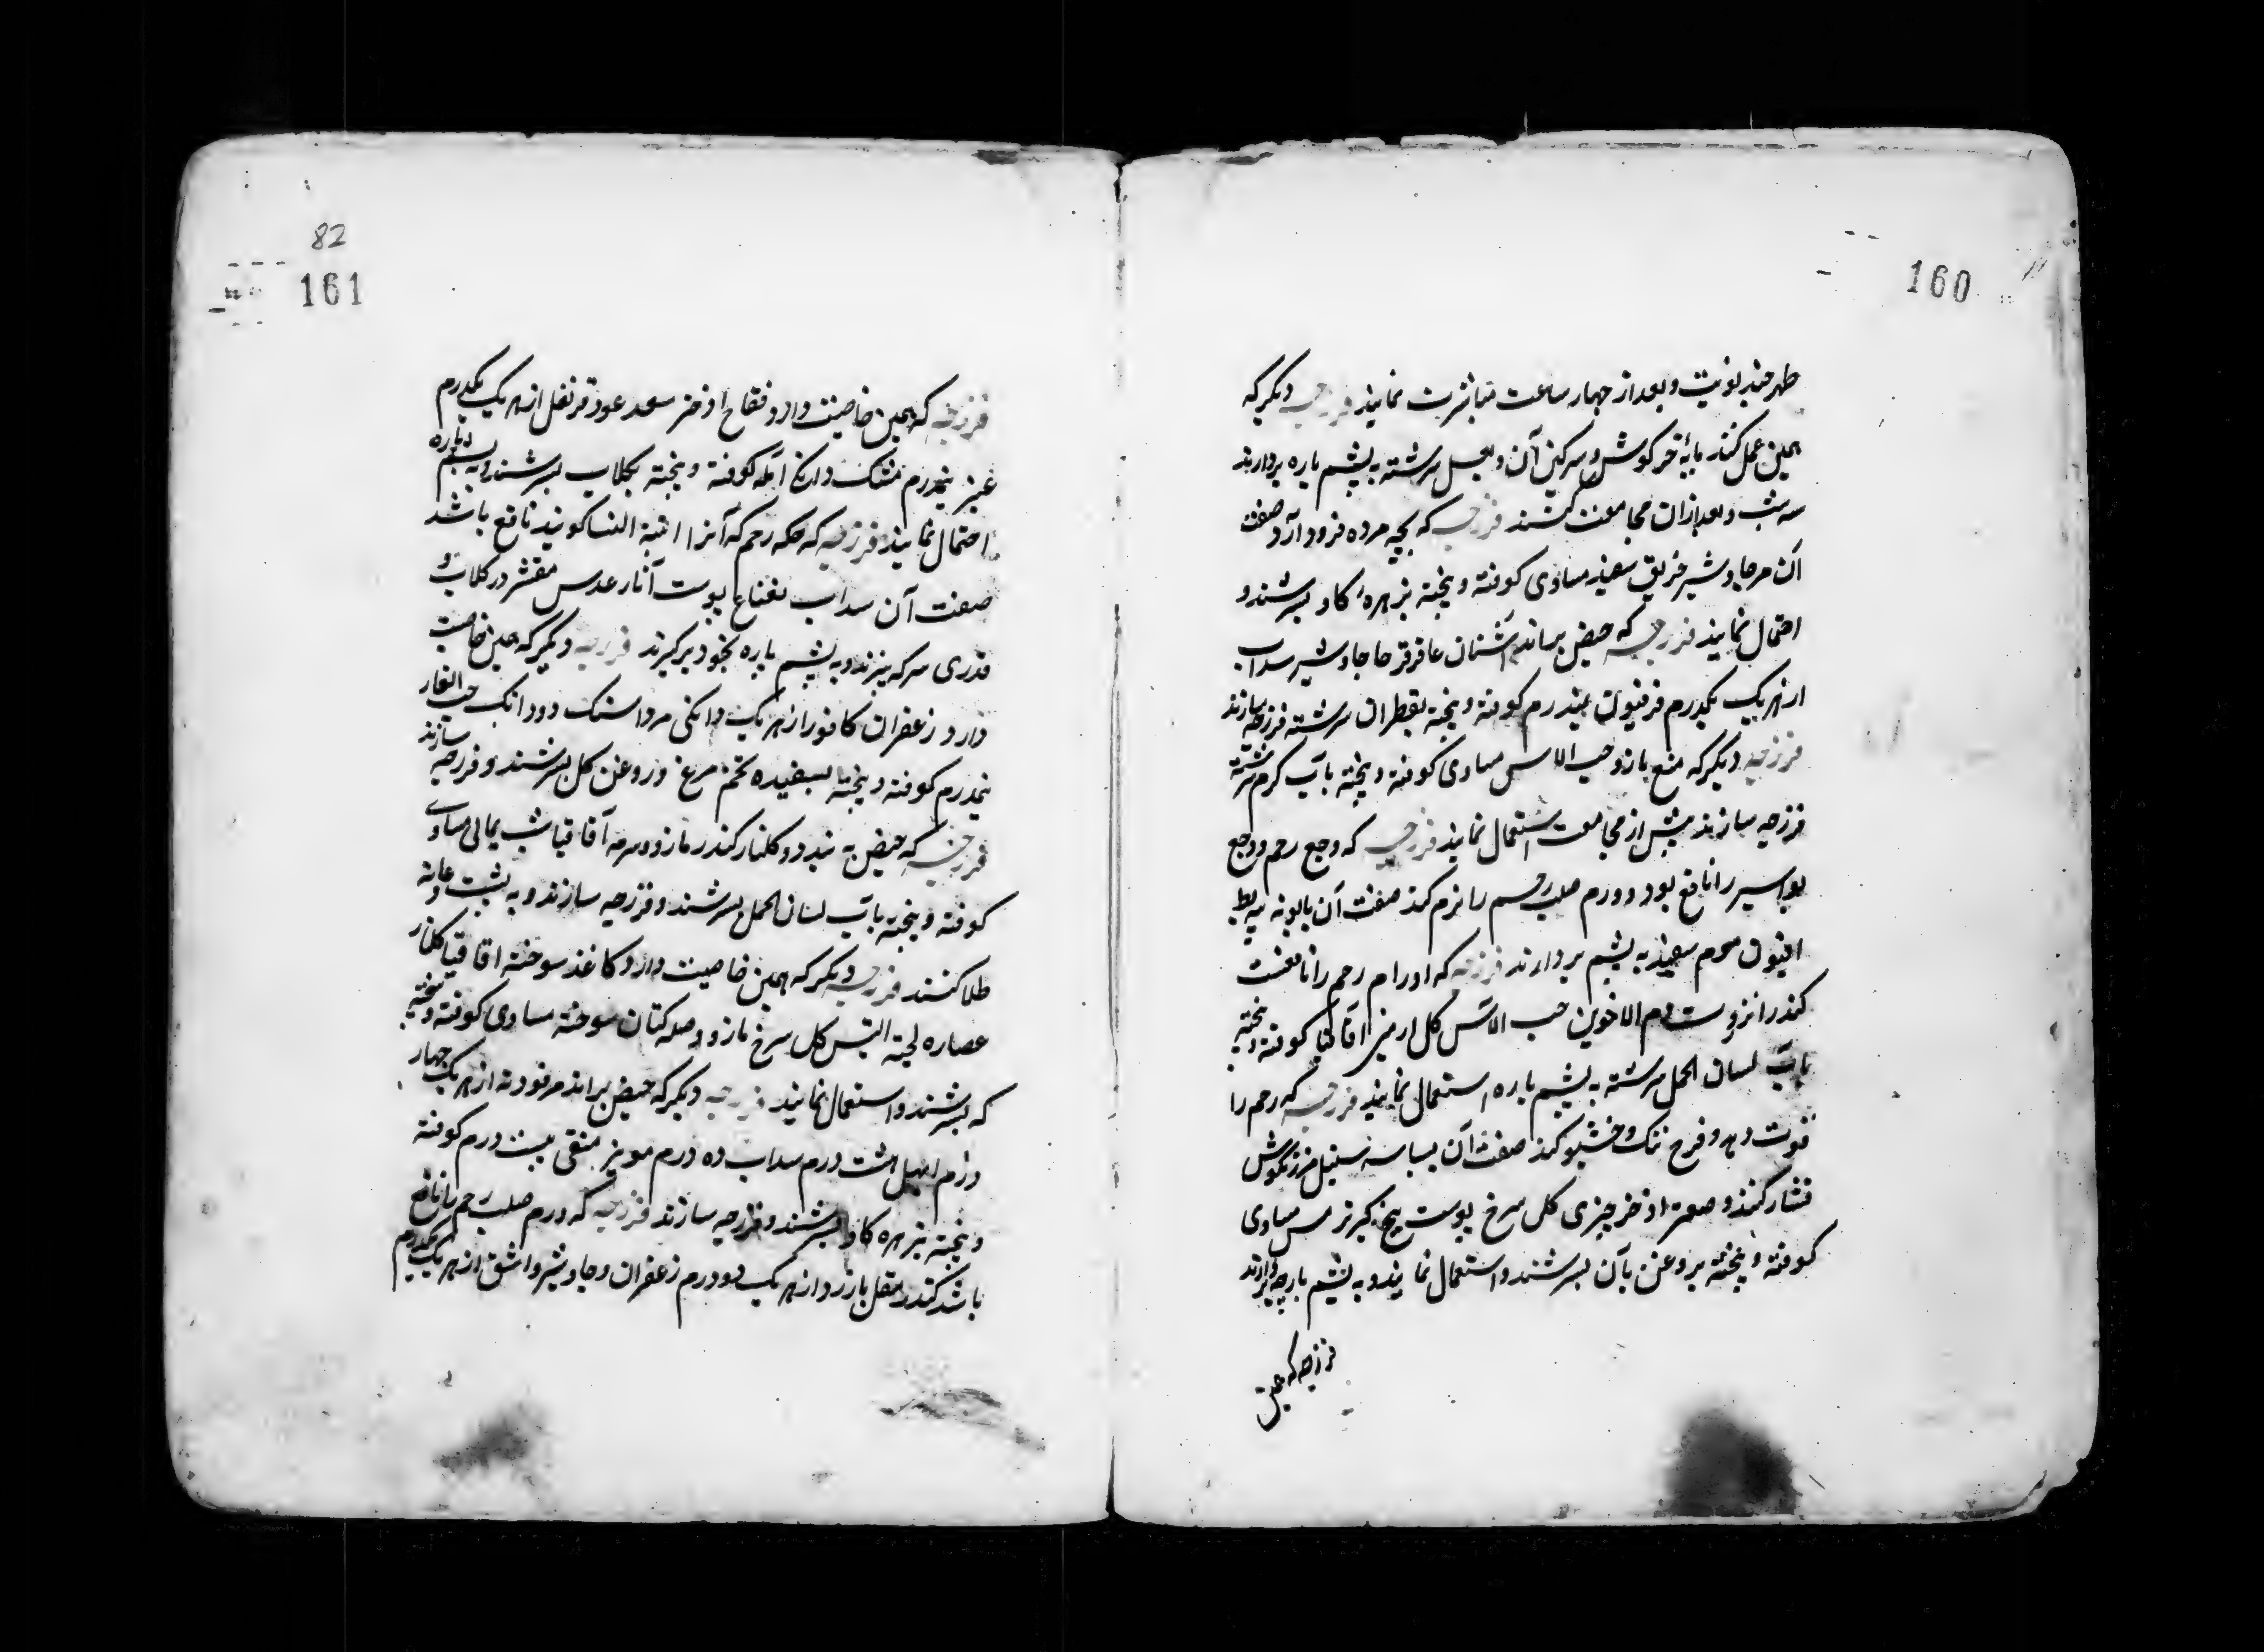 160
طهر چند نوبت و بعد از چهار ساعت مباشرت نمایند فرزجه دیگر که
همین عمل کند پایهٔ خرگوش و سرکین آن و بعسل سرشته به پشم پاره بردارند
سه شب و بعد ازان مجامعت کنند فرزجه که بچه مرده فرود آرد صفت
آن مر جاوشیر خربق سفید مساوی کوفته و پخته بزهرهٔ کاو بسرشند و
احتمال نمایند فرزجه که حیض براند آشنان عاقرقرحا جاوشیر سداب
از هر یک یکدرم فرفیون نیمدرم کوفته و پخته بقطران سرشته فرزجه سازند
فرزجه دیگر که منع باز و حب الاس مساوی کوفته و پخته بآب کرم سرشته
فرزجه سازند پیش از مجامعت استعمال نمایند فرزجه که وجع رحم و وجع
بواسیر را نافع بود و ورم صلب رحم را نرم کند صفت آن بابونه پیه بط
افیون موم سفید به پشم بردارند فرزجه که اورام رحم را نافعست
کندر انزروت دم الاخوین حب الاس کل ارمنی اقاقیا کوفته و پخته
بآب لسان الحمل سرشته به پشم پاره استعمال نمایند فرزجه که رحم را
قوت دهد و فرج تنک و خشبو کند صفت آن بسباسه سنبل مرزنکوش
فشار کند و صعتر اذخر چیزی کل سرخ پوست بیخ کبر ترمس مساوی
کوفته و پخته بروغن بان بسرشند و استعمال نمایند و به پشم پارچه بردارند
فرزجه که همین
82
161
فرزجه که همین خاصیت دارد فقاح اذخر سعد عود قرنفل از هر یک یکدرم
عنبر نیمدرم مشک دانک آمله کوفته و پخته بکلاب بسرشند و به پشم پاره
احتمال نمایند فرزجه که حکه رحم که آنرا ابنة النسا کویند نافع باشد
صفت آن سداب نعناع پوست آنار عدس مقشر در کلاب و
قدری سرکه بپزند و به پشم پاره بخود برکیرند فرزجه دیگر که همین خاصیت
دارد زعفران کافور از هر یک دانکی مرداسنک دو دانک حب الغار
نیمدرم کوفته و پخته بسفیده تخم مرغ و روغن کل بسرشند و فرزجه سازند
فرزجه که حیض به بندد و کلنار کندر مازو و سرمه آقاقیا شب یمانی مساوی
کوفته و پخته بآب لسان الحمل بسرشند و فرزجه سازند و به پشت و عانه
طلا کنند فرزجه دیگر که همین خاصیت دارد کاغذ سوخته اقاقیا کلنار
عصاره لحیة التیس کل سرخ مازو و صله کتان سوخته مساوی کوفته و پخته
که بسرشند و استعمال نمایند فرزجه دیگر که حیض براند مر فودنه از هر یک چهار
درم ابهل هشت درم سداب ده درم مویز منقی بیست درم کوفته
و پخته بزهره کاو بسرشند و فرزجه سازند فرزجه که ورم صلب رحم را نافع
باشد کندر مقل بازرد از هر یک دو درم زعفران و جاوشیر و اشق از هر یک یکدرم